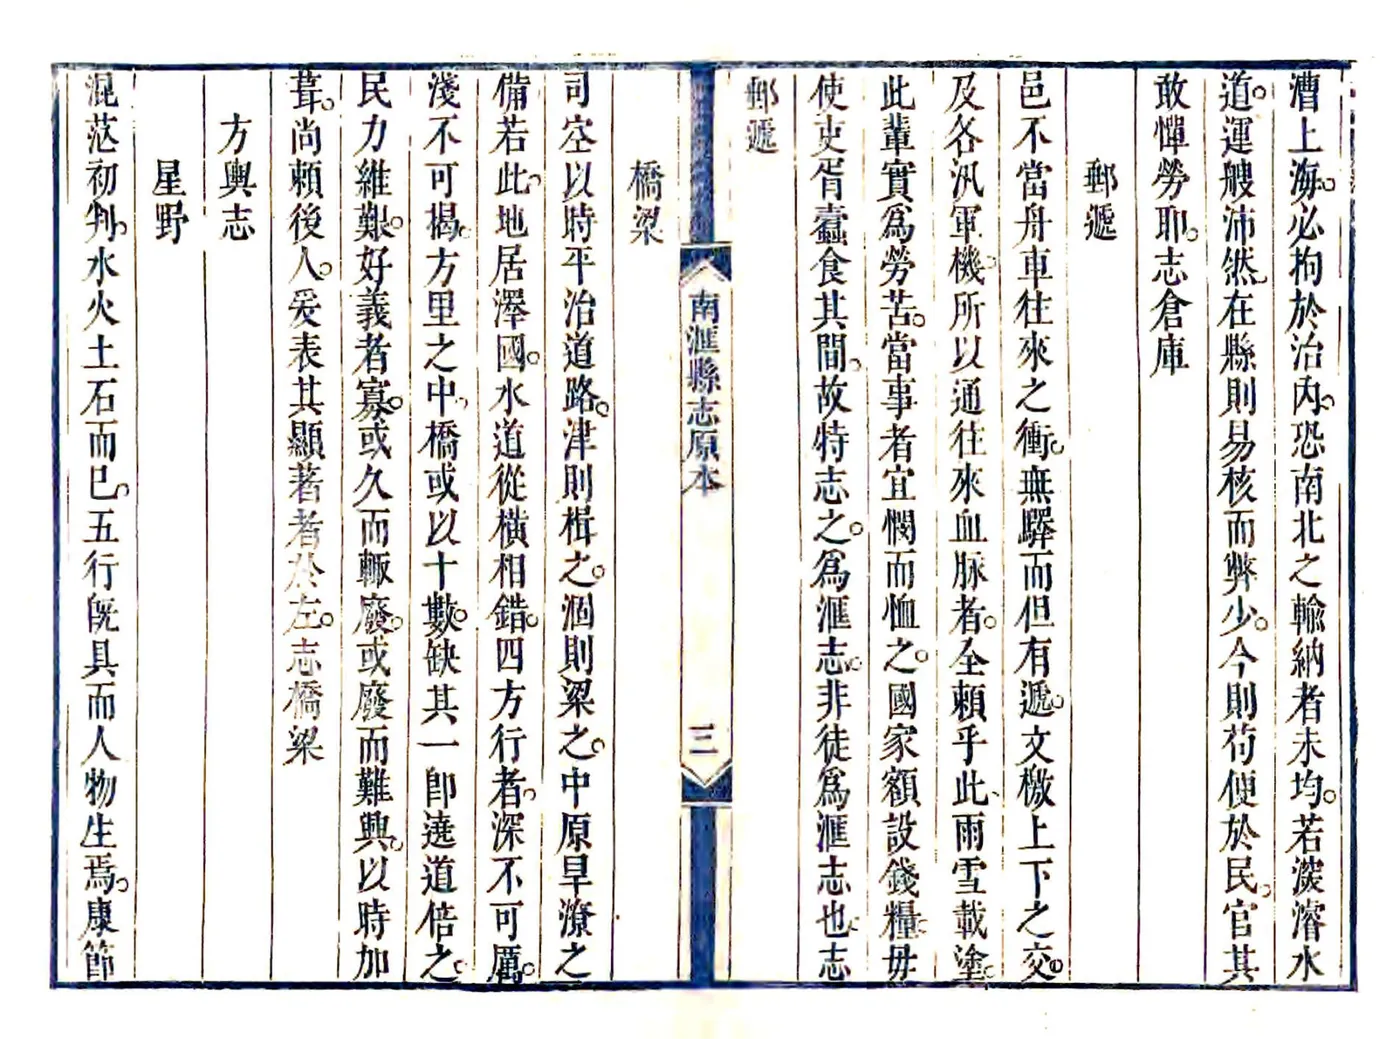 漕上海。必拘於治內。恐南北之輸納者未均。若濬濬水
道。運艘沛然。在縣則易核而弊少。今則苟便於民。官其
敢憚勞耶。志倉庫
郵遞
邑不當舟車往來之衝。無驛而但有遞。文檄上下之交。
及各汛軍機。所以通往來血脉者。全賴乎此、雨雪載塗。
此輩實爲勞苦。當事者宜憫而恤之。國家額設錢糧。毋
使吏胥蠹食其間。故特志之。爲滙志。非徒爲滙志也。志
郵遞
南滙縣志原本
三
橋梁
司空以時平治道路。津則楫之。涸則梁之。中原旱潦之
備若此。地居澤國。水道從橫相錯。四方行者。深不可厲。
淺不可揭。方里之中、橋或以十數。缺其一卽遶道倍之。
民力維艱。好義者寡。或久而輙廢。或廢而難興。以時加
葺。尚賴後人。爰表其顯著者於左。志橋梁
方輿志
星野
混茫初判。水火土石而已。五行旣具而人物生焉。康節